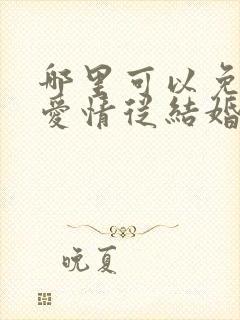 哪里可以免
愛情從結婚
晚夏